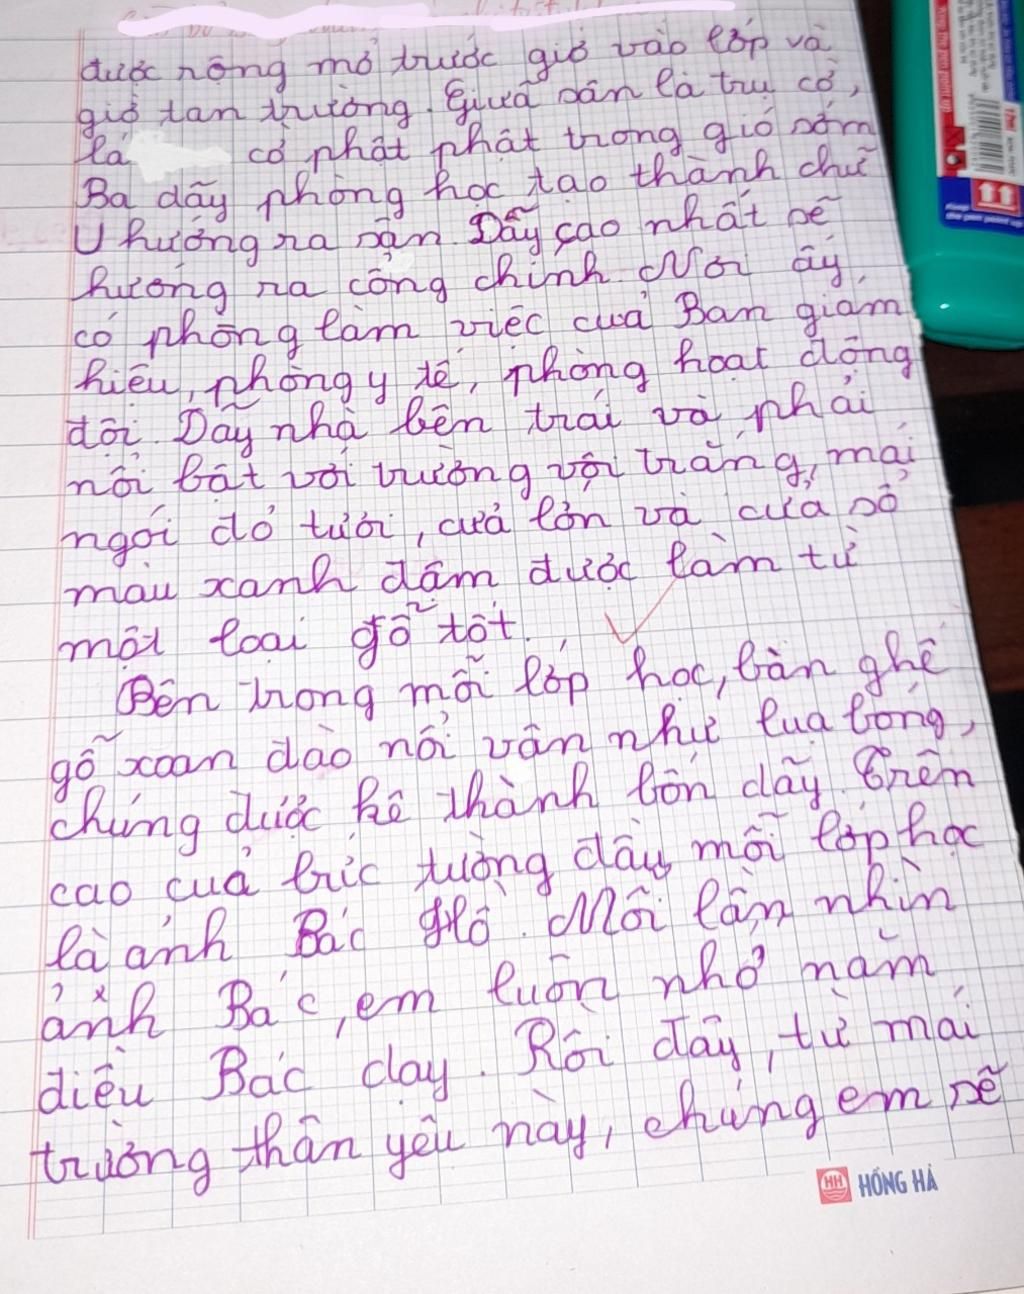 được rộng mở trước giờ vào lớp và
giờ tan trường. Giữa sân là trụ cờ,
lá cờ phật phật trong gió sớm
Ba dãy phòng học tạo thành chữ
U hướng ra sân. Dãy cao nhất sẽ
hướng ra cổng chính. Nơi ấy,
có phòng làm việc cuả Ban giám
hiêu, phòng y tế, phòng hoạt động
đội. Dãy nhà bên trái và phải
nổi bật với trường vôi trắng, mái
ngói đỏ tươi, cưả lớn và cửa sổ
màu xanh đậm được làm từ
một loại gỗ tốt.
Bên trong mỗi lớp học, bàn ghế
gỗ xoan đào nổi vân như lụa bóng,
chúng được kê thành bốn dãy. Trên
cao cuả bức tường đầu mỗi lớp học
là ảnh Bác Hồ. Mỗi lần nhìn
ảnh Bác, em luôn nhớ năm
điều Bác dạy. Rồi đây, từ mái
trường thân yêu này, chúng em sẽ
HỒNG HÀ